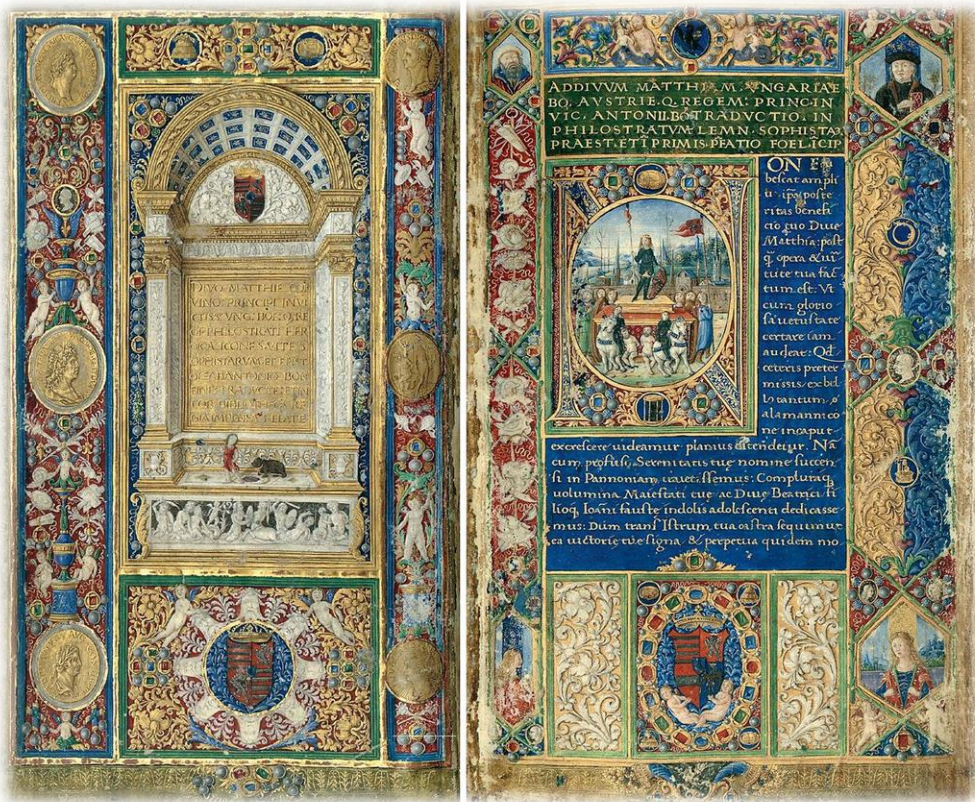 DIVO MATTHIE COR
VINO PRINCIPI INVI
VNG BO Q RE
GI PHILOSTRATI HER
OICA ICONES VITE S
OPHISTARVM ET EPIST
OLE AB ANTONIO BON
ADDIVVM MATTHIAM VNGARIAE
BO. AVSTRIE. Q. REGEM: PRINC. IN
VIC. ANTONII. BO. TRADVCTIO. IN
PHILOSTRATVM LEMN. SOPHISTAM
PRAEST. ET PRIMIS. PFATIO FOELICIP
ON E
bescat ampli
ti ipa poste
ritas benefi
cio tuo Diue
Matthia: post
q opera & uir
tute tua fac
tum est: Vt
cum glorio
sa uetustate
certare iam
audeat: Qd
ceteris preter
missis, ex bel
lo tantum
alamannico
ne in caput
excrescere uideamur planius ostendetur. Na
cum profuso, Serenitatis tue nomine succen
si in Pannoniam
uolumina Maiestati tue ac Diue Beatrici fi
lioq, Ioani fauste indolis adolescenti dedicasse
mus: Dum trans Istrum tua castra sequimur
ea uictorie tue signa & perpetua quidem mo